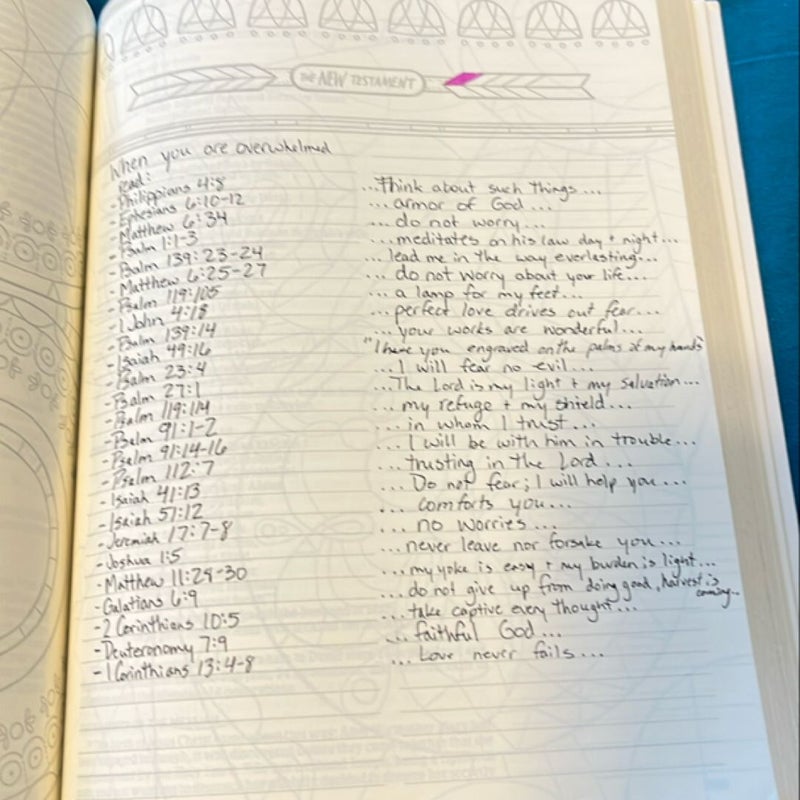 THE NEW TESTAMENT
When you are overwhelmed
read:
- Philippians 4:8 ...Think about such things...
- Ephesians 6:10-12 ... armor of God...
- Matthew 6:34 ... do not worry...
- Psalm 1:1-3 ...meditates on his law day + night...
- Psalm 139:23-24 ... lead me in the way everlasting...
- Matthew 6:25-27 ... do not worry about your life...
- Psalm 119:105 ... a lamp for my feet...
- 1 John 4:18 ... perfect love drives out fear...
- Psalm 139:14 ... your works are wonderful...
- Isaiah 49:16 "I have you engraved on the palms of my hands"
- Psalm 23:4 ... I will fear no evil...
- Psalm 27:1 ...The Lord is my light + my salvation...
- Psalm 119:114 ... my refuge + my shield...
- Psalm 91:1-2 ... in whom I trust...
- Psalm 91:14-16 ... I will be with him in trouble...
- Psalm 112:7 ... trusting in the Lord...
- Isaiah 41:13 ... Do not fear; I will help you...
- Isaiah 57:12 ... comforts you...
- Jeremiah 17:7-8 ... no worries...
- Joshua 1:5 ... never leave nor forsake you...
- Matthew 11:29-30 ... my yoke is easy + my burden is light...
- Galatians 6:9 ... do not give up from doing good, harvest is coming...
- 2 Corinthians 10:5 ... take captive every thought...
- Deuteronomy 7:9 ... faithful God...
- 1 Corinthians 13:4-8 ... Love never fails...